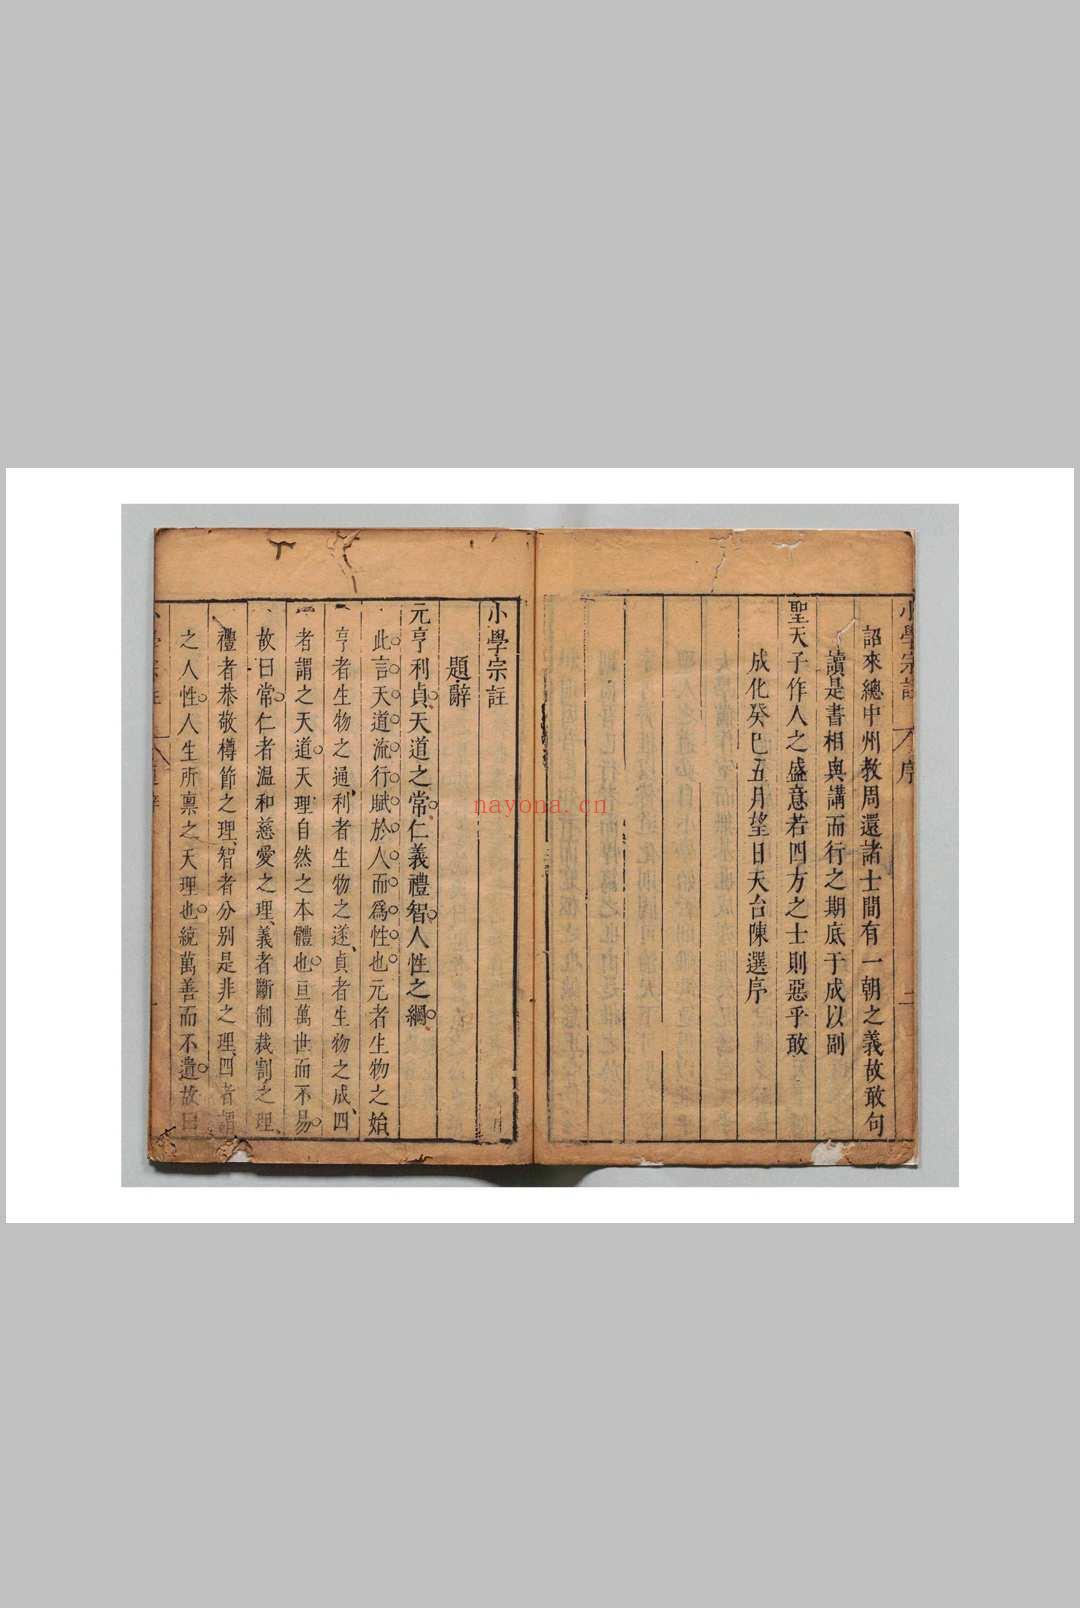 小學宗註 序 二
詔來總中州教周還諸士間有一朝之義故敢句
讀是書相與講而行之期底于成以副
聖天子作人之盛意若四方之士則惡乎敢
成化癸巳五月望日天台陳選序
小學宗註
題辭
元亨利貞。天道之常。仁義禮智。人性之綱。
此言天道流行賦於人而爲性也元者生物之始
亨者生物之通、利者生物之遂、貞者生物之成、四
者謂之天道。天理自然之本體也。亘萬世而不易。
故曰常。仁者溫和慈愛之理、義者斷制裁割之理、
禮者恭敬樽節之理、智者分別是非之理、四者謂
之人性。人生所稟之天理也。統萬善而不遺。故曰
小學宗註
nayona.cn